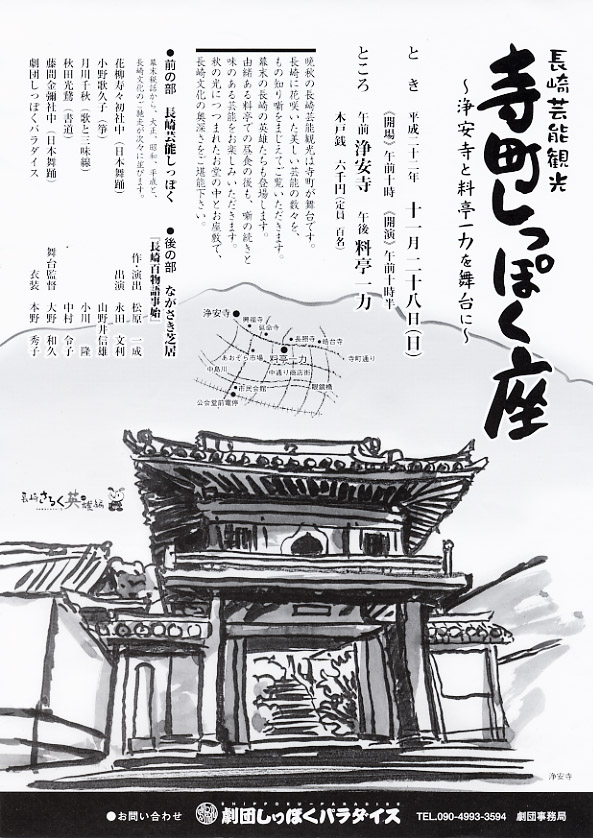 長崎芸能観光
寺町しっぽく座
～浄安寺と料亭一力を舞台に～
とき 平成二十二年 十一月二十八日(日)
《開場》午前十時 《開演》午前十時半
ところ 午前 浄安寺 午後 料亭一力
木戸銭 六千円(定員 百名)
晩秋の長崎芸能観光は寺町が舞台です。
長崎に花咲いた美しい芸能の数々を、
もの知り噺をまじえてご覧いただきます。
幕末の長崎の英雄たちも登場します。
由緒ある料亭での昼食の後も、噺の続きと
味のある芸能をお楽しみいただきます。
秋の光につつまれたお堂の中とお座敷で、
長崎文化の奥深さをご堪能下さい。
●前の部 長崎芸能しっぽく
幕末秘話から、大正、昭和、平成と、
長崎文化のご馳走が次々に並びます。
花柳寿々初社中(日本舞踊)
小野歌久子(箏)
月川千秋(歌と三味線)
秋田光鷲(書道)
藤間金彌社中(日本舞踊)
劇団しっぽくパラダイス
●後の部 ながさき芝居
『長崎百物語事始』
作・演出 松原 一成
出演 永田 文利
山野井信雄
小川 隆
中村 令子
舞台監督 大野 和久
衣装 本野 秀子
浄安寺
興福寺
延命寺
長照寺
皓台寺
あおぞら市場
料亭一力
寺町通り
中島川
中通り商店街
市民会館
眼鏡橋
公会堂前電停
長崎さるく英雄編
浄安寺
●お問い合わせ
SHIPPOKU-PARADISE
劇団しっぽくパラダイス
TEL.090-4993-3594 劇団事務局